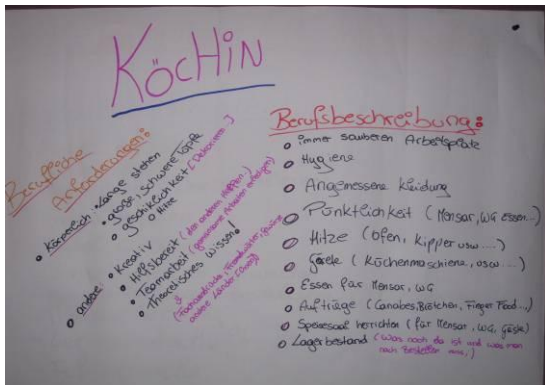 KÖCHIN
Berufliche
Anforderungen:
Körperlich: Lange stehen
große, schwere Töpfe
geschiklichkeit (Dekorieren..)
Hitze
andere: Kreativ
Hilfsbereit (den anderen helfen..)
Teamarbeit (gemeinsame Arbeiten erledigen)
Theoretisches Wissen.
(Fachausdrücke, Fremdwörter, Gewürze
andere Länder
Berufsbeschreibung:
immer sauberen Arbeitsplatz
Hygiene
Angemessene Kleidung
Pünktlichkeit (Mensar, WG Essen...)
Hitze (Ofen, Kipper usw....)
(Küchenmaschiene, usw...)
Essen für Mensar, WG
Aufträge (Canabes, Brötchen, Finger Food...)
Speisesaal herrichten (für Mensar, WG, Gäste)
Lagerbestand (Was noch da ist und was man
noch bestellen muss,)